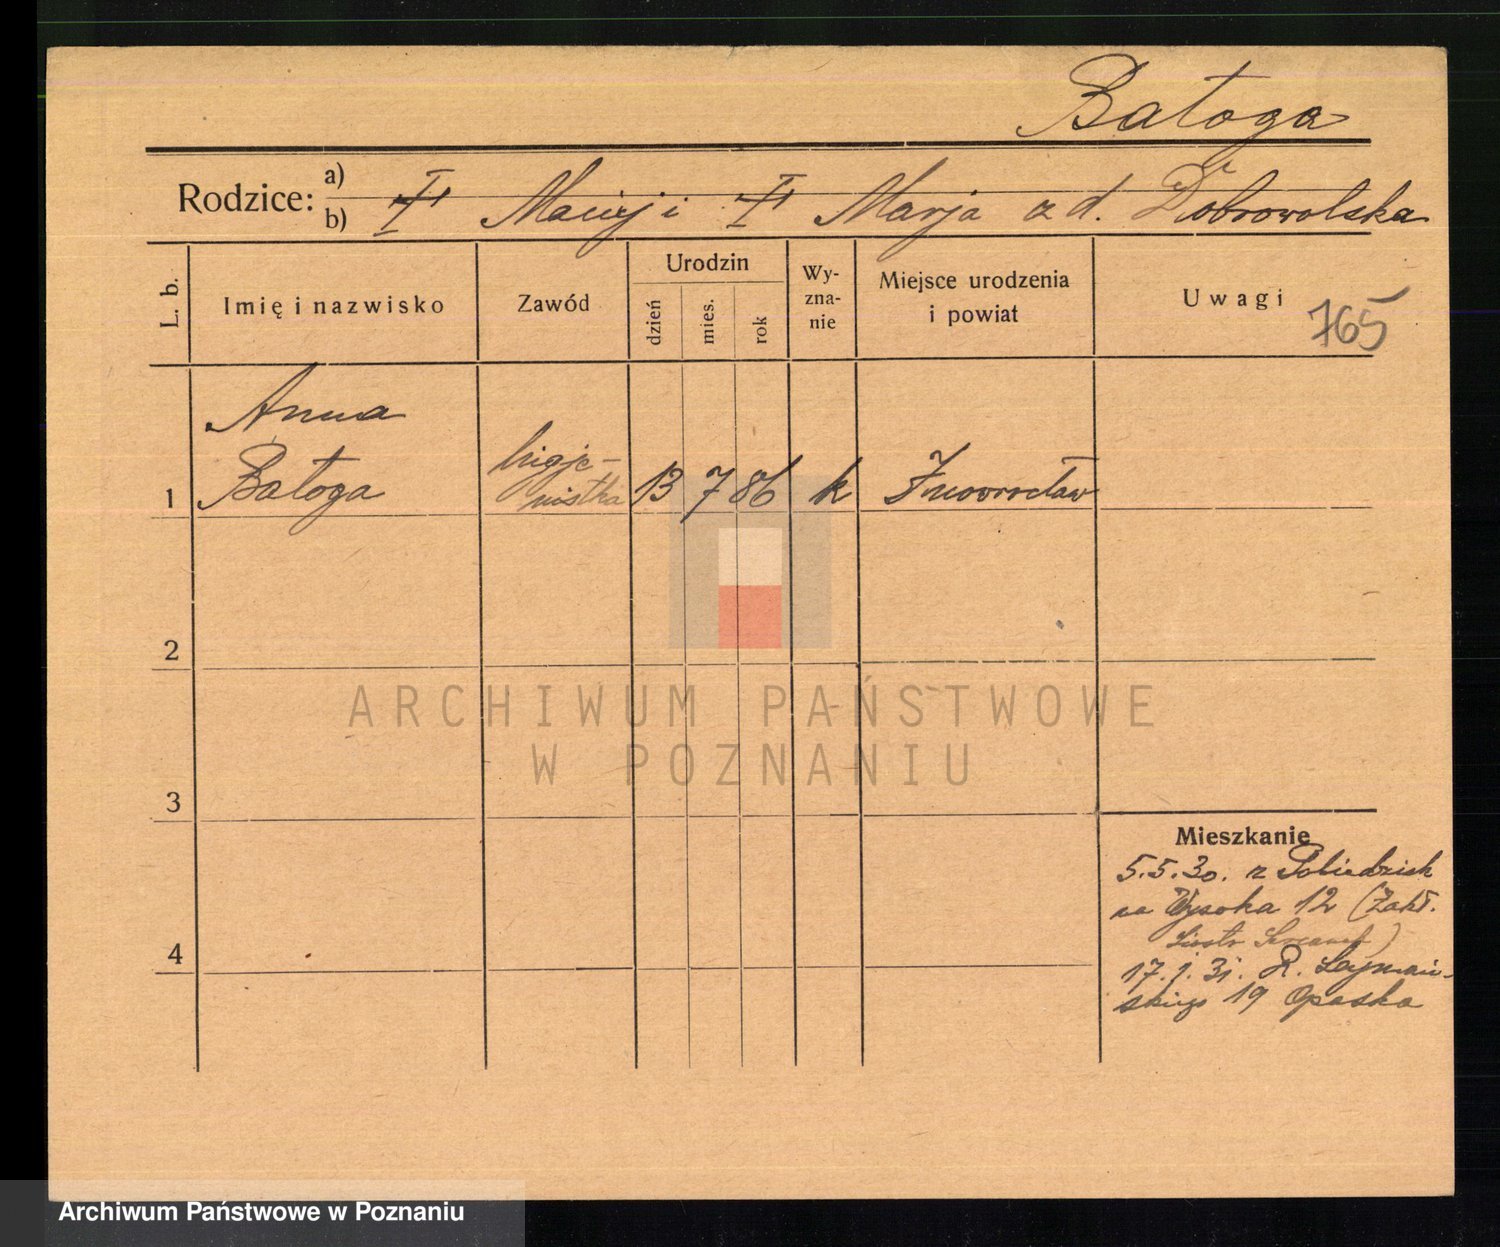 Batoga
Rodzice: a)
b) † Maciej i † Marja z d. Dobrowolska
L. b.
Imię i nazwisko
Zawód
Urodzin
dzień
mies.
rok
Wy-
zna-
nie
Miejsce urodzenia
i powiat
Uwagi
765
Anna
1 Batoga higje-
nistka 13 7 86 k Inowrocław
2
ARCHIWUM PAŃSTWOWE
W POZNANIU
3
Mieszkanie
5.5.30. z Pobiedzisk
na Wysoka 12 (Zakł.
Siostr
4
17. 31. R. Szyman-
skiego 19 Opaska
Archiwum Państwowe w Poznaniu